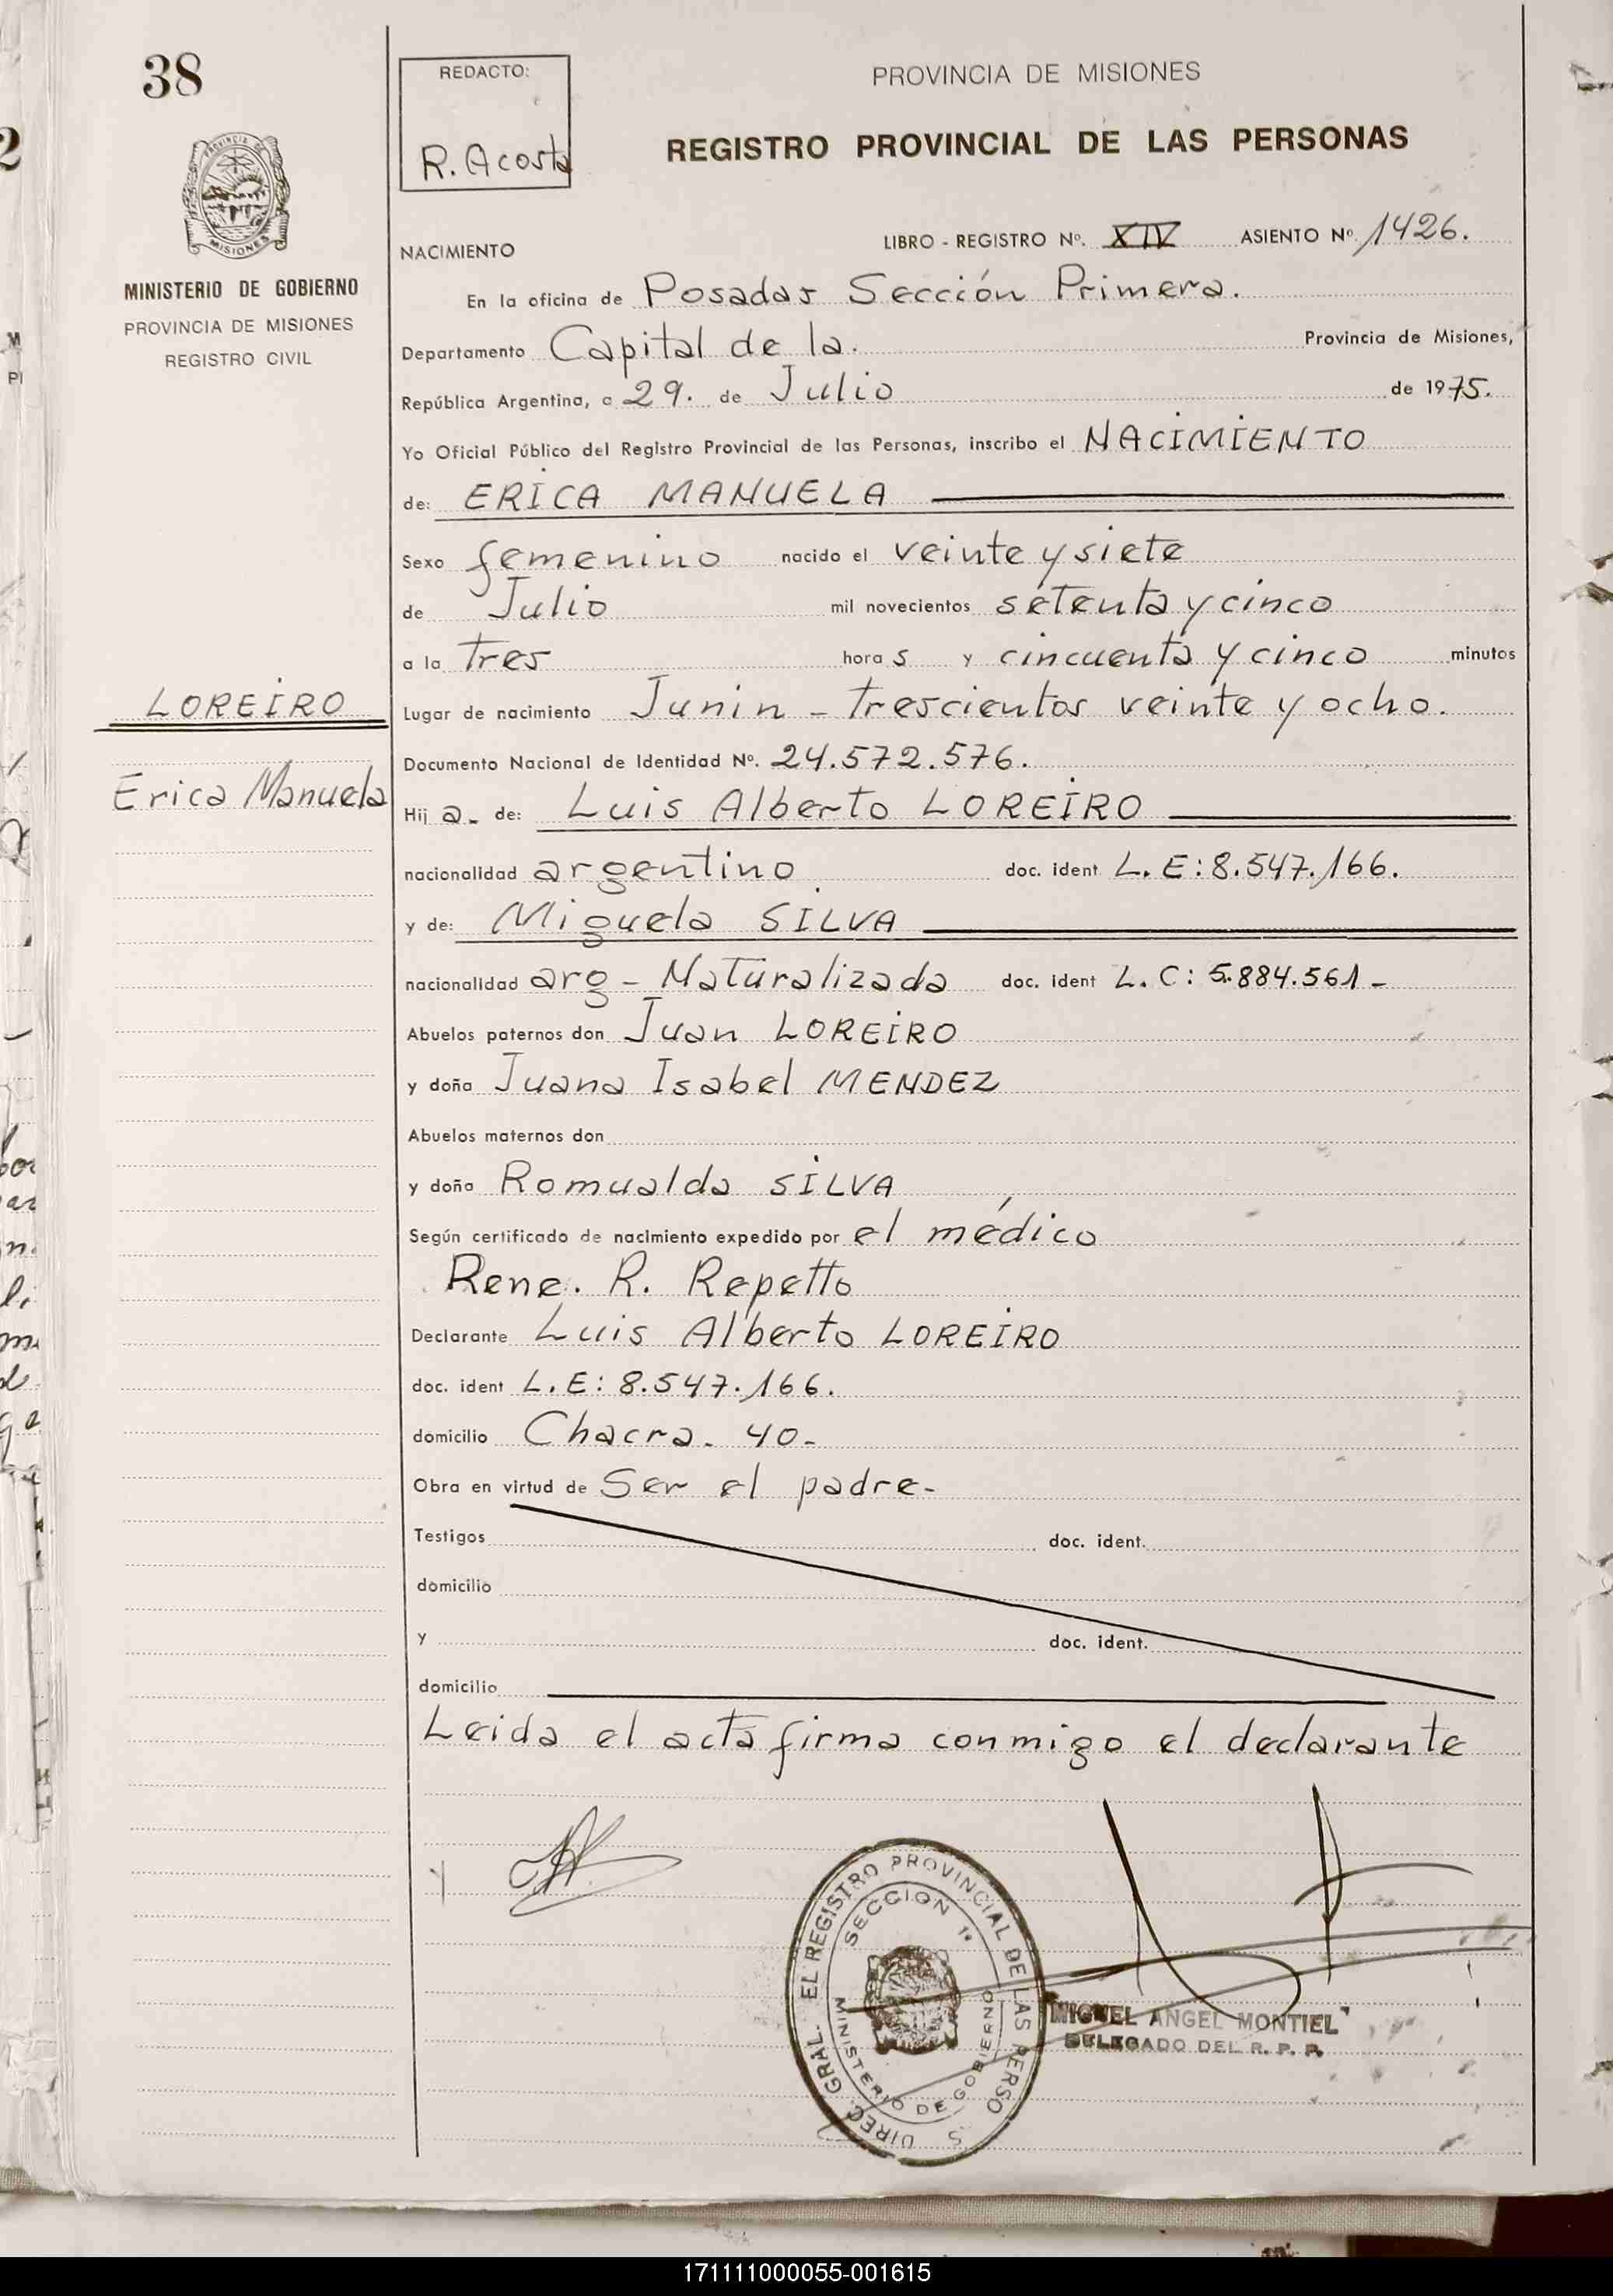 38
REDACTO:
R. Acosta
PROVINCIA DE MISIONES
REGISTRO PROVINCIAL DE LAS PERSONAS
PROVINCIA DE
MISIONES
MINISTERIO DE GOBIERNO
PROVINCIA DE MISIONES
REGISTRO CIVIL
NACIMIENTO LIBRO - REGISTRO Nº. XIV ASIENTO Nº. 1426.
En la oficina de Posadas Sección Primera.
Departamento Capital de la. Provincia de Misiones,
República Argentina, a 29. de Julio de 1975.
Yo Oficial Público del Registro Provincial de las Personas, inscribo el NACIMIENTO
de: ERICA MANUELA
Sexo femenino nacido el veinte y siete
de Julio mil novecientos setenta y cinco
a la tres hora s y cincuenta y cinco minutos
LOREIRO
Lugar de nacimiento Junin - trescientos veinte y ocho.
Documento Nacional de Identidad Nº. 24.572.576.
Erica Manuela
Hij a. de: Luis Alberto LOREIRO
nacionalidad argentino doc. ident L. E: 8.547.166.
y de: Miguela SILVA
nacionalidad arg - Naturalizada doc. ident L. C: 5.884.561 -
Abuelos paternos don Juan LOREIRO
y doña Juana Isabel MENDEZ
Abuelos maternos don
y doña Romualda SILVA
Según certificado de nacimiento expedido por el médico
Rene. R. Repetto
Declarante Luis Alberto LOREIRO
doc. ident L. E: 8.547.166.
domicilio Chacra. 40-
Obra en virtud de Ser el padre-
Testigos doc. ident.
domicilio
y doc. ident.
domicilio
Leida el acta firma conmigo el declarante
DIREC. GRAL. EL REGISTRO PROVINCIAL DE LAS PERSO S
SECCION 1ª
MINISTERIO DE GOBIERNO
MIGUEL ANGEL MONTIEL
DELEGADO DEL R. P. P.
171111000055-001615